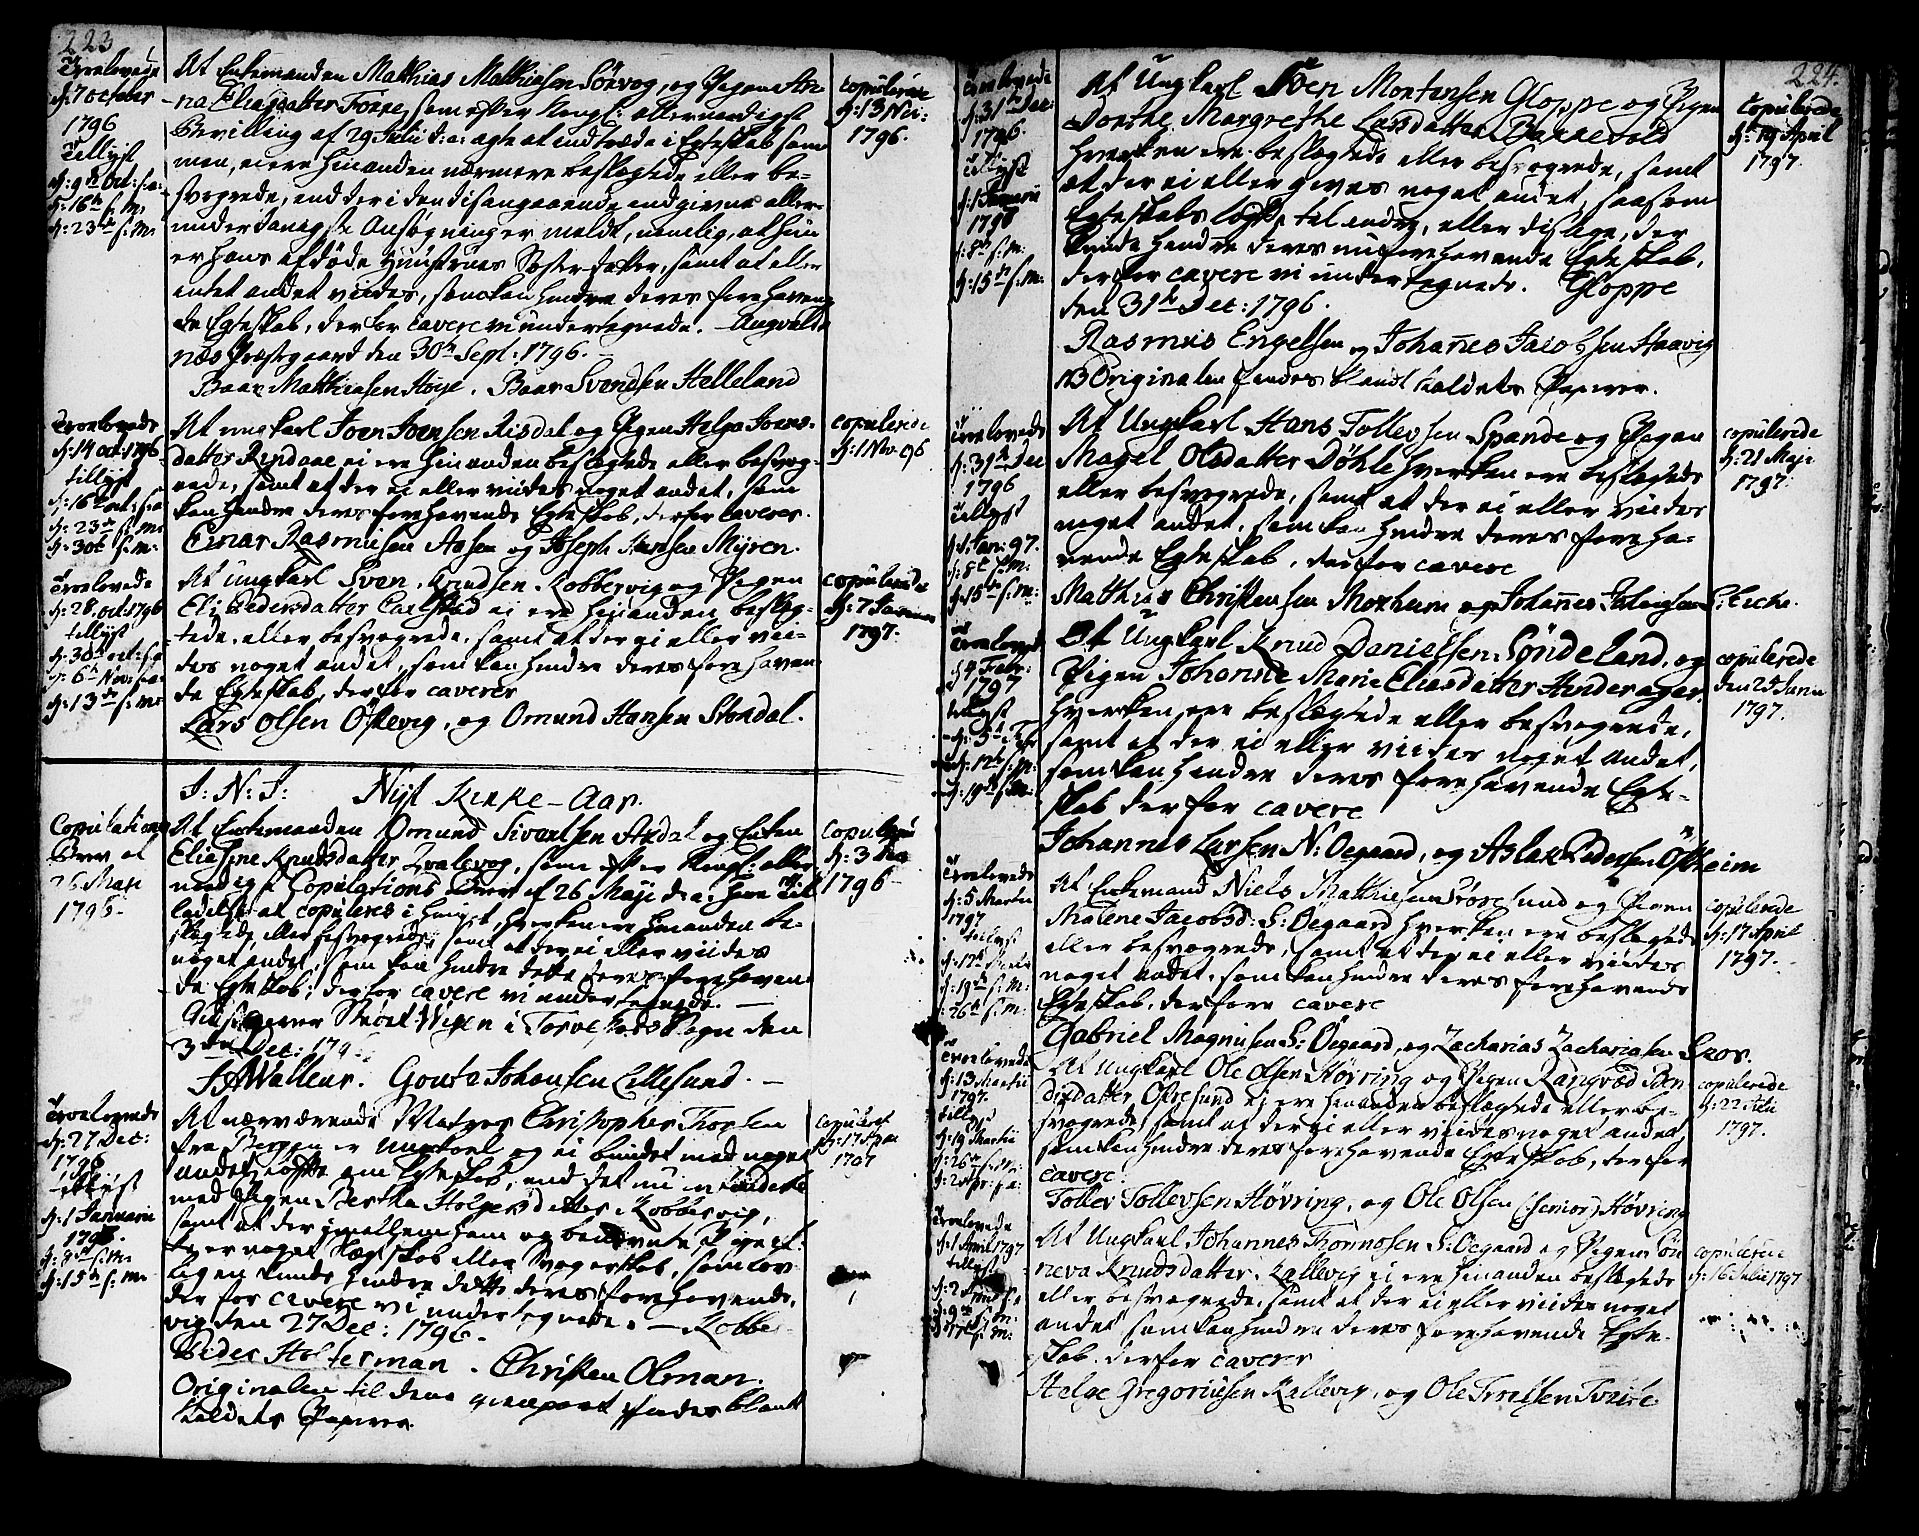 223
Troelovede
d: 7 october
1796
Tillyst
d: 9de Oct: s: a:
d: 16de s. m.
d: 23de s. m.
At Enkemanden Mathias Mathiasen Sörvog, og Pigen An-
na Eliasdatter Fosne, som efter Kongl: allernaadigst
Bevilling af 29 Julii d: a: agte at indtræde i Egteskab sam
men, ei ere hinanden nærmere beslægtede eller be-
svogrede, end der i den disangaaende indgivne aller-
underdanigste Ansøgning er meldt, nemlig, at hun
er hans afdøde Hustrues Søster-datter, samt at eller
intet andet viides, som kan hindre deres forehaven
de Egteskab, derfor cavere vi undertegnede. Augvalds
næs Præstegaard den 30te Sept: 1796.
Baar Mathiasen Høye. Baar Svendsen Helleland
copulerede
d: 13 Nov:
1796.
Troelovede
d: 14 oct: 1796
tillyst
d: 16de oct: s: a
d: 23de s. m.
d: 30te s. m.
At ungkarl Joen Joensen Risdal og Pigen Helga Joens-
datter Rendaae ei ere hinanden beslægtede eller besvog-
rede, samt at der ei eller viides noget andet, som
kan hindre deres forehavende Egteskab, derfor caverer.
Einar Rasmusen Aasen og Joseph Hansen Myren.
copulerede
d: 1 Nov. 96
Troelovede
d: 28. oct 1796
tillyst
d: 30te oct: s: a
d: 6te Nov: s: a:
d: 13de s. m.
At ungkarl Sven Knudsen Kobbervig og Pigen
Eli Pedersdatter Carlstad ei ere hinanden beslæg-
tede eller besvogrede, samt at der ei eller vii-
des noget andet, som kan hindre deres forehaven
de Egteskab, derfor caverer
Lars Olsen Östevig, og Omund Hansen Stondal.
copulerede
d: 7 Januar
1797.
J: N: J: Nyt Kirke-Aar.
Copulations
Brev af
26 Maji
1796.
At Enkemanden Omund Sivertsen Ardal og Enken
Eliasine Knudsdatter Qvalevog, som efter Kongl: aller
naadigst Copulations Brev af 26 Maji d: a: have til
ladelse at copuleres i Huuset, hverken ere hinanden be-
slægtede eller besvogrede, samt at der ei eller viides
noget andet, som kan hindre dette deres forehaven
de Egteskab; derfor cavere vi undertegnede.
i Torvestads Sogn den
3die Dec: 1796
Goute Johansen Lillesund.
copulerede
d: 3 Dec
1796
Troelovede
d: 27 Dec:
1796
tillyst
d: 1 Januarii
1796.
d: 8de s. m.
d: 15de s. m.
At nærværende Matros Christopher Thorsen
fra Bergen er Ungkarl og ei bundet med noget
andet løfte om Egteskab, end det nu
med Pigen Bertha Holgersdatter Kobbervig,
samt at der imellem ham og bemeldte Pige ei
er noget Slægtskab eller Svogerskab, som lov
ligen kunde hindre dette deres forehavende,
derfor cavere vi undertegnede. Kobber-
vig den 27 Dec: 1796.
Peder Holterman. Christen Olman.
Originalen til dene findes blant
Kaldets Papirer.
copuleret
d: 17
1797
224.
Troelovede
d: 31te Dec:
1796.
tillyst
d: 1 Januarii
1798
d: 8de s. m.
d: 15de s. m.
At Ungkarl Sven Mortensen Gloppe og Pigen
Dorthe Margrethe Larsdatter
hverken ere beslægtede eller besvogrede, samt
at der ei eller gives noget andet, saasom
Egteskabs løfte til andre, eller dislige, der
kunde hindre deres nu forehavende Egteskab,
derfor cavere vi undertegnede. Gloppe
den 31te Dec: 1796.
Rasmus Engelsen og Johanes Jacobsen Haavig
NB Originalen findes blandt Kaldets Papirer.
copulerede
d: 19 April
1797.
Troelovede
d: 31te Dec
1796
tillyst
d: 1. Jan: 97.
d: 8de s. m.
d: 15de s. m.
At Ungkarl Hans Tollevsen Spande og Pigen
Magel Olsdatter Döhle hverken ere beslægtede
eller besvogrede, samt at der ei eller viides
noget andet, som kan hindre deres foreha-
vende Egteskab, derfor cavere
Mathias Christensen Moxheim og Johanes
copulerede
d: 21 Maji
1797.
Troelovede
d: 4 Febr:
1797
tillyst
d: 5te Febr
d: 12te s. m.
d: 19de s. m.
At Ungkarl Knud Danielsen Söndeland, og
Pigen Johanne Marie Eliasdatter Hinderager
hverken ere beslægtede eller besvogrede,
samt at der ei eller viides noget andet,
som kan hindre deres forehavende Egte-
skab derfor cavere
Johannes Larsen N: Oegaard, og Aslak Pedersen Östheim
copulerede
den 25 Junii
1797.
Troelovede
d: 5 Martii
1797
tillyst
d: 12te Martii
d: 19de s. m.
d: 26de s. m.
At Enkemand Niels Mathiesen Røresund og Pigen
Malene Jacobsd: S: Oegaard hverken ere beslægtede
eller besvogrede, samt at der ei eller viides
noget andet, som kan hindre deres forehavende
Egteskab, derfore cavere
Gabriel Magnusen S: Oegaard, og Zacharias Zachariasen
copulerede
d: 17 April
1797.
Troelovede
d: 13 Martii
1797.
tillyst
d: 19 Martii
d: 26de s. m.
d: 2 Apr: s: a:
At Ungkarl Ole Olsen Hövring og Pigen Rangved Ben
dixdatter Östresund ei ere hinanden beslægtede eller be-
svogrede, samt at der ei eller viides noget andet
som kan hindre deres forehavende Egteskab, derfor
cavere.
Tollev Tollevsen Hövring, og Ole Olsen (senior) Hövring
copulerede
d: 22 Julii
1797.
Troelovede
d: 1 April 1797
tillyst
d: 2 April s: a
d: 9de s. m.
s. m.
At Ungkarl Johannes Thormosen S: Oegaard og Pigen Sön
neva Knudsdatter Kallevig ei ere hinanden beslægtede
eller besvogrede, samt at der ei eller viides noget
andet som kan hindre deres forehavende Egte-
skab, derfor caverer
Helge Gregoriusen Kallevig, og Ole
copulerede
d: 16 Julii 1797